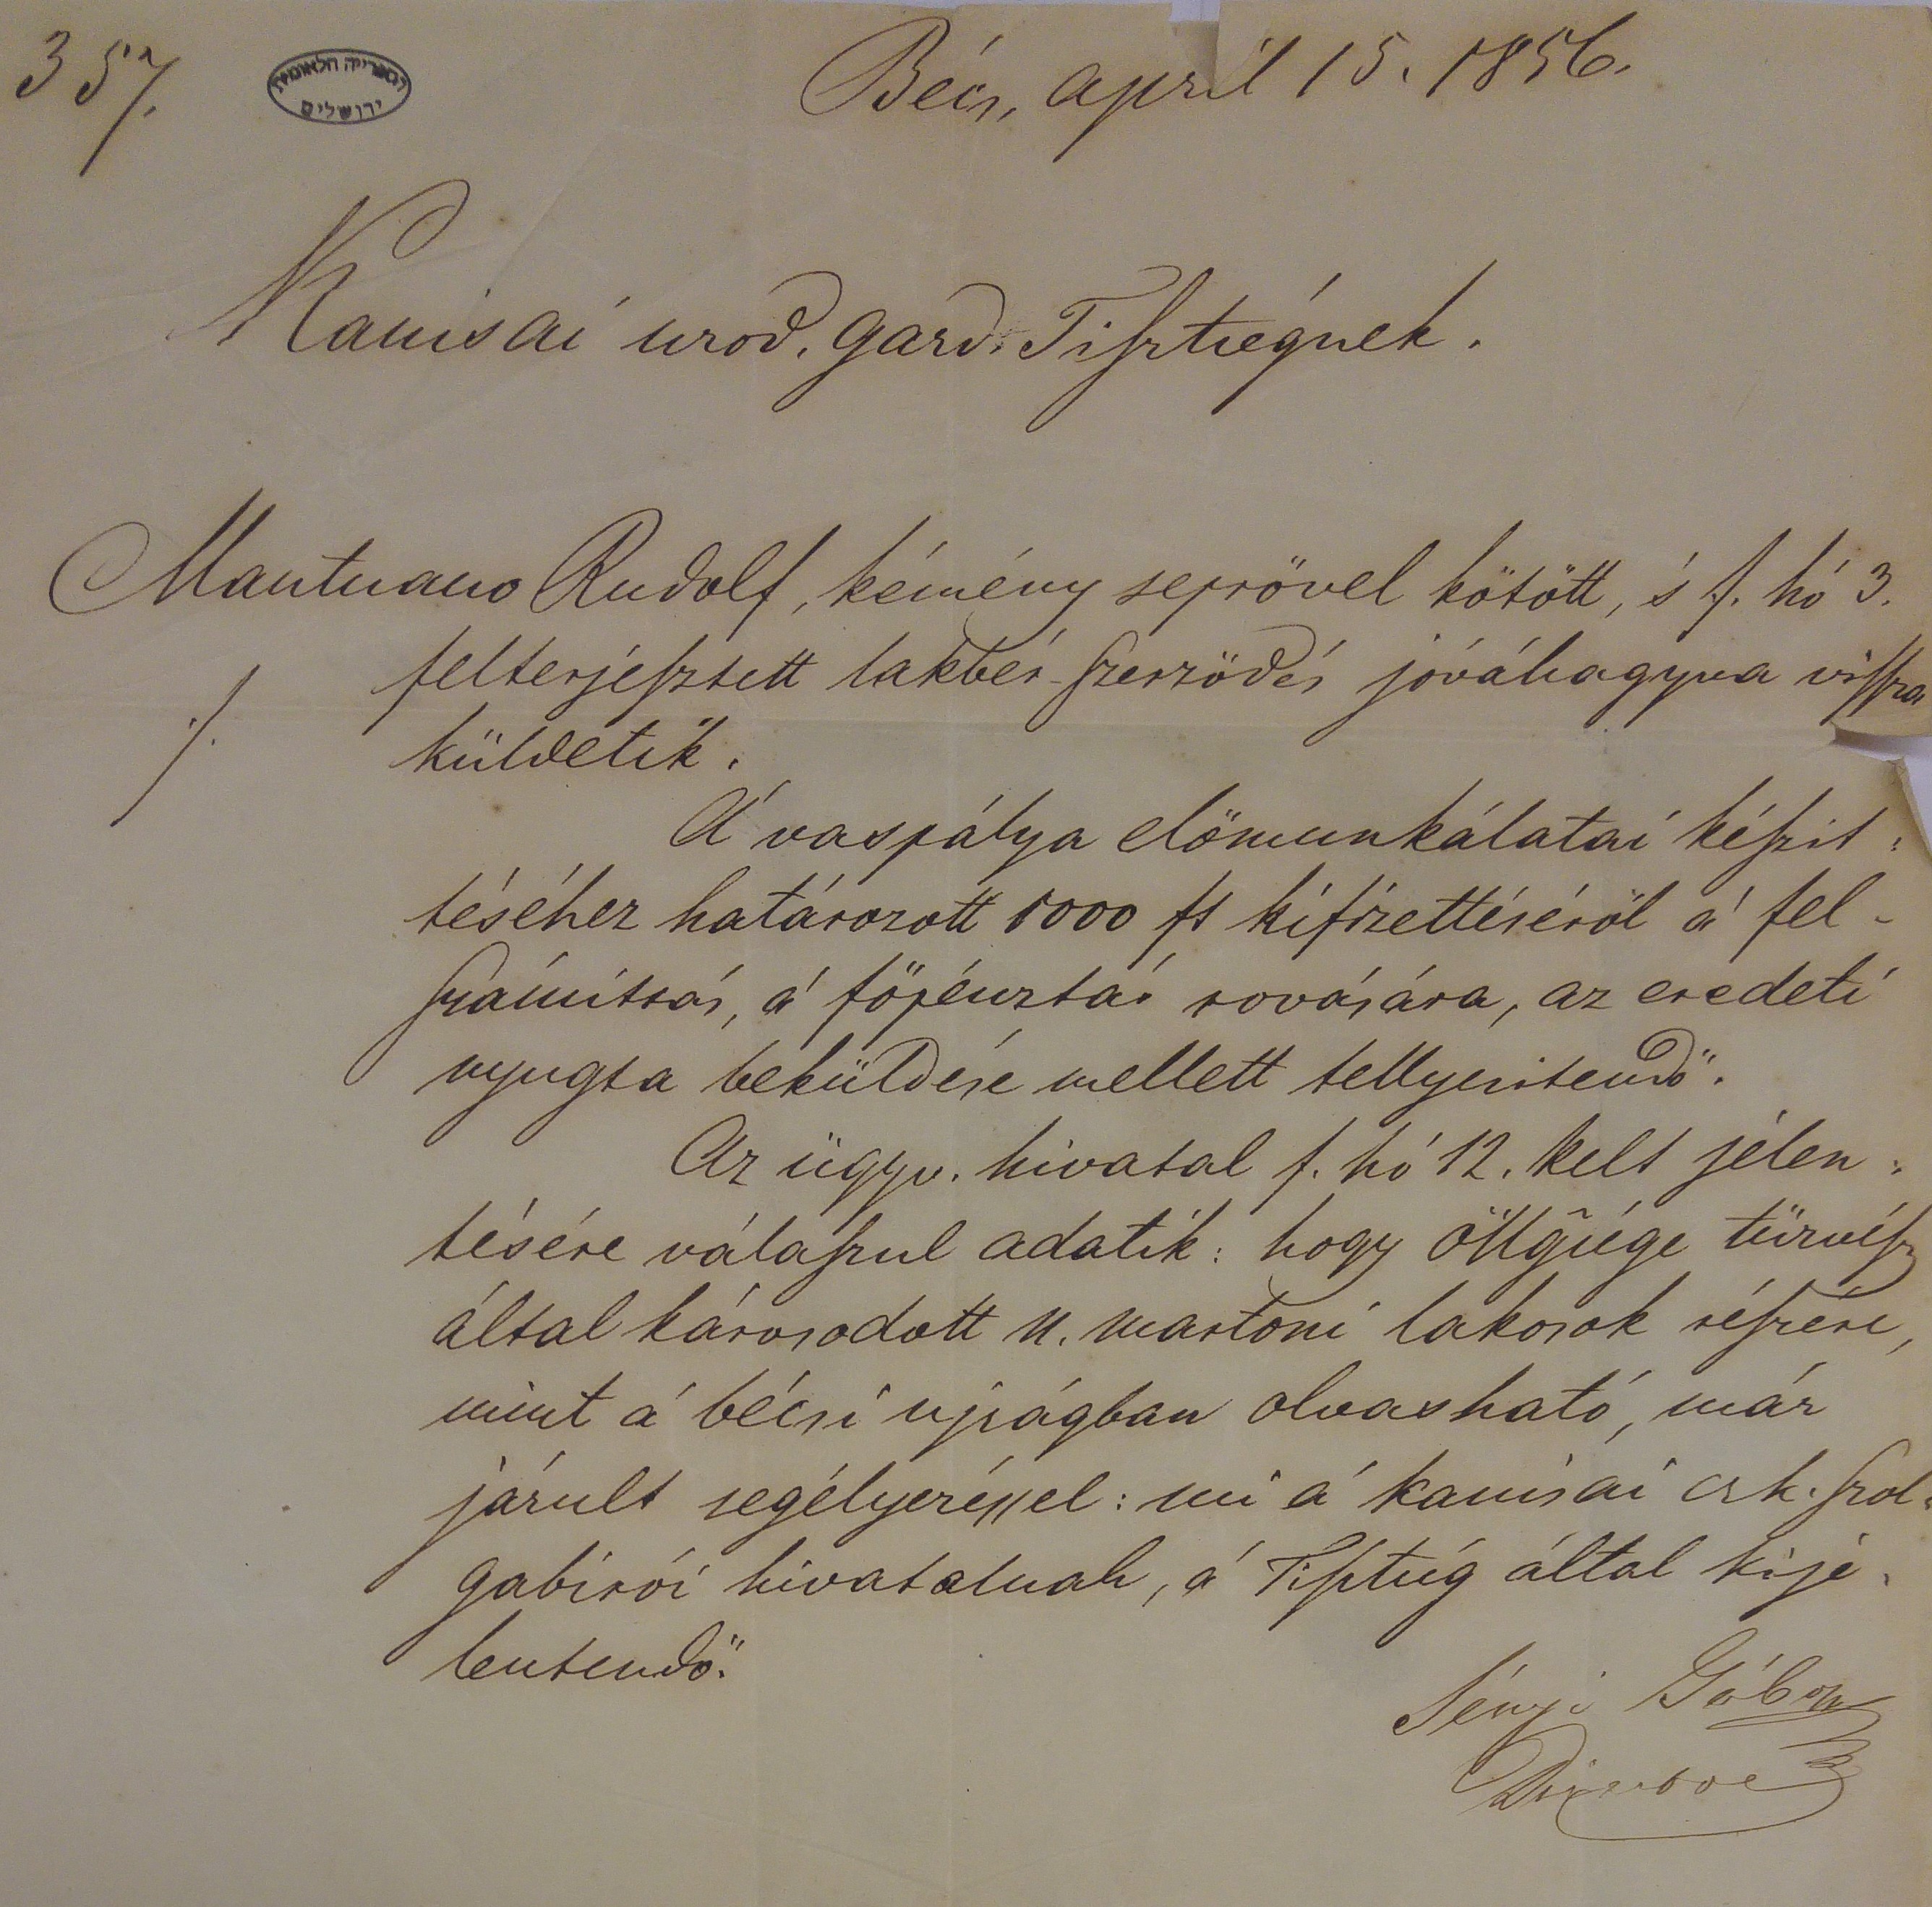 357.
הספריה הלאומית
ירושלים
Bécs, april 15. 1856.
Kanisai urod. gazd. Tisztségnek.
Mantuano Rudolf, kémény seprövel kötött, 's f. hó 3.
felterjesztett lakbér-szerzödés jóváhagyva vissza
küldetik.
·/.
A' vaspálya elömunkálatai készit:
téséhez határozott 1000 ft kifizettéséröl a' fel-
számitás, a' főpénztár rovására, az eredeti
nyugta beküldése mellett tellyesitendő.
Az ügyv. hivatal f. hó 12. kelt jelen:
tésére válaszul adatik: hogy
által károsodott
lakosok részére,
mint a' bécsi ujságban olvasható, már
járult segélyezéssel: mi a' kanisai csk. szol:
gabirói hivatalnak, a' Tisztség által kije:
lentendő.
Gábor